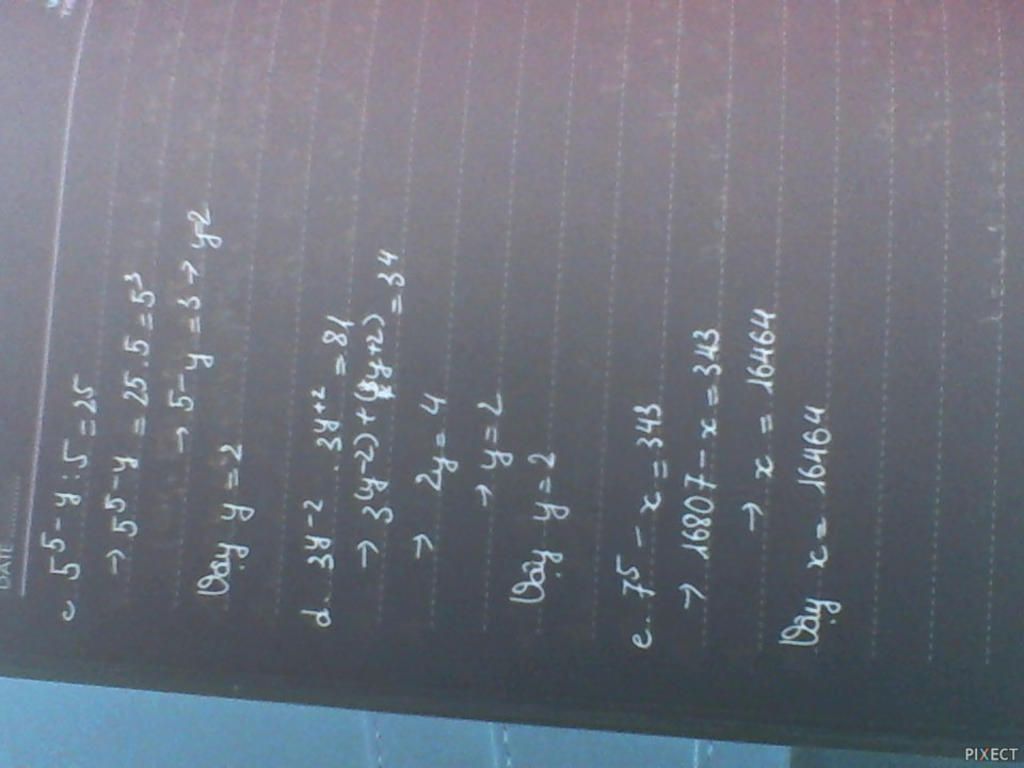 DATE
c 5⁵⁻ʸ : 5 = 25
→ 5⁵⁻ʸ = 25 . 5 = 5³
→ 5 - y = 3 → y = 2
Vậy y = 2
d. 3ʸ⁻² . 3ʸ⁺² = 81
→ 3(y-2)+(y+2) = 3⁴
→ 2y = 4
→ y = 2
Vậy y = 2
e. 7⁵ - x = 343
→ 16807 - x = 343
→ x = 16464
Vậy x = 16464
PIXECT